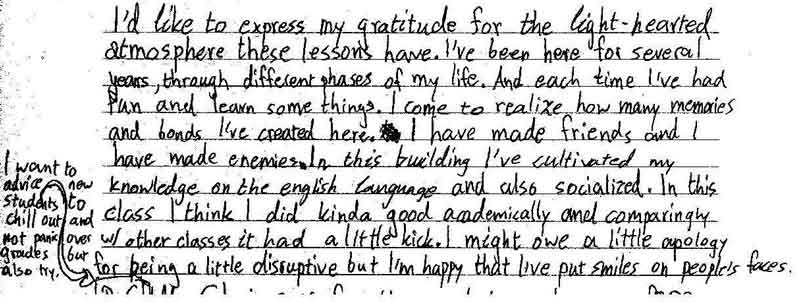 I'd like to express my gratitude for the light-hearted
atmosphere these lessons have. I've been here for several
years, through different phases of my life. And each time I've had
fun and learn some things. I come to realize how many memories
and bonds I've created here. I have made friends and I
have made enemies. In this building I've cultivated my
knowledge on the english language and also socialized. In this
class I think I did kinda good academically and comparingly
w/ other classes it had a little kick. I might owe a little apology
for being a little disruptive but I'm happy that I've put smiles on people's faces.
I want to
advice new
students to
chill out and
not panic over
grades but
also try.